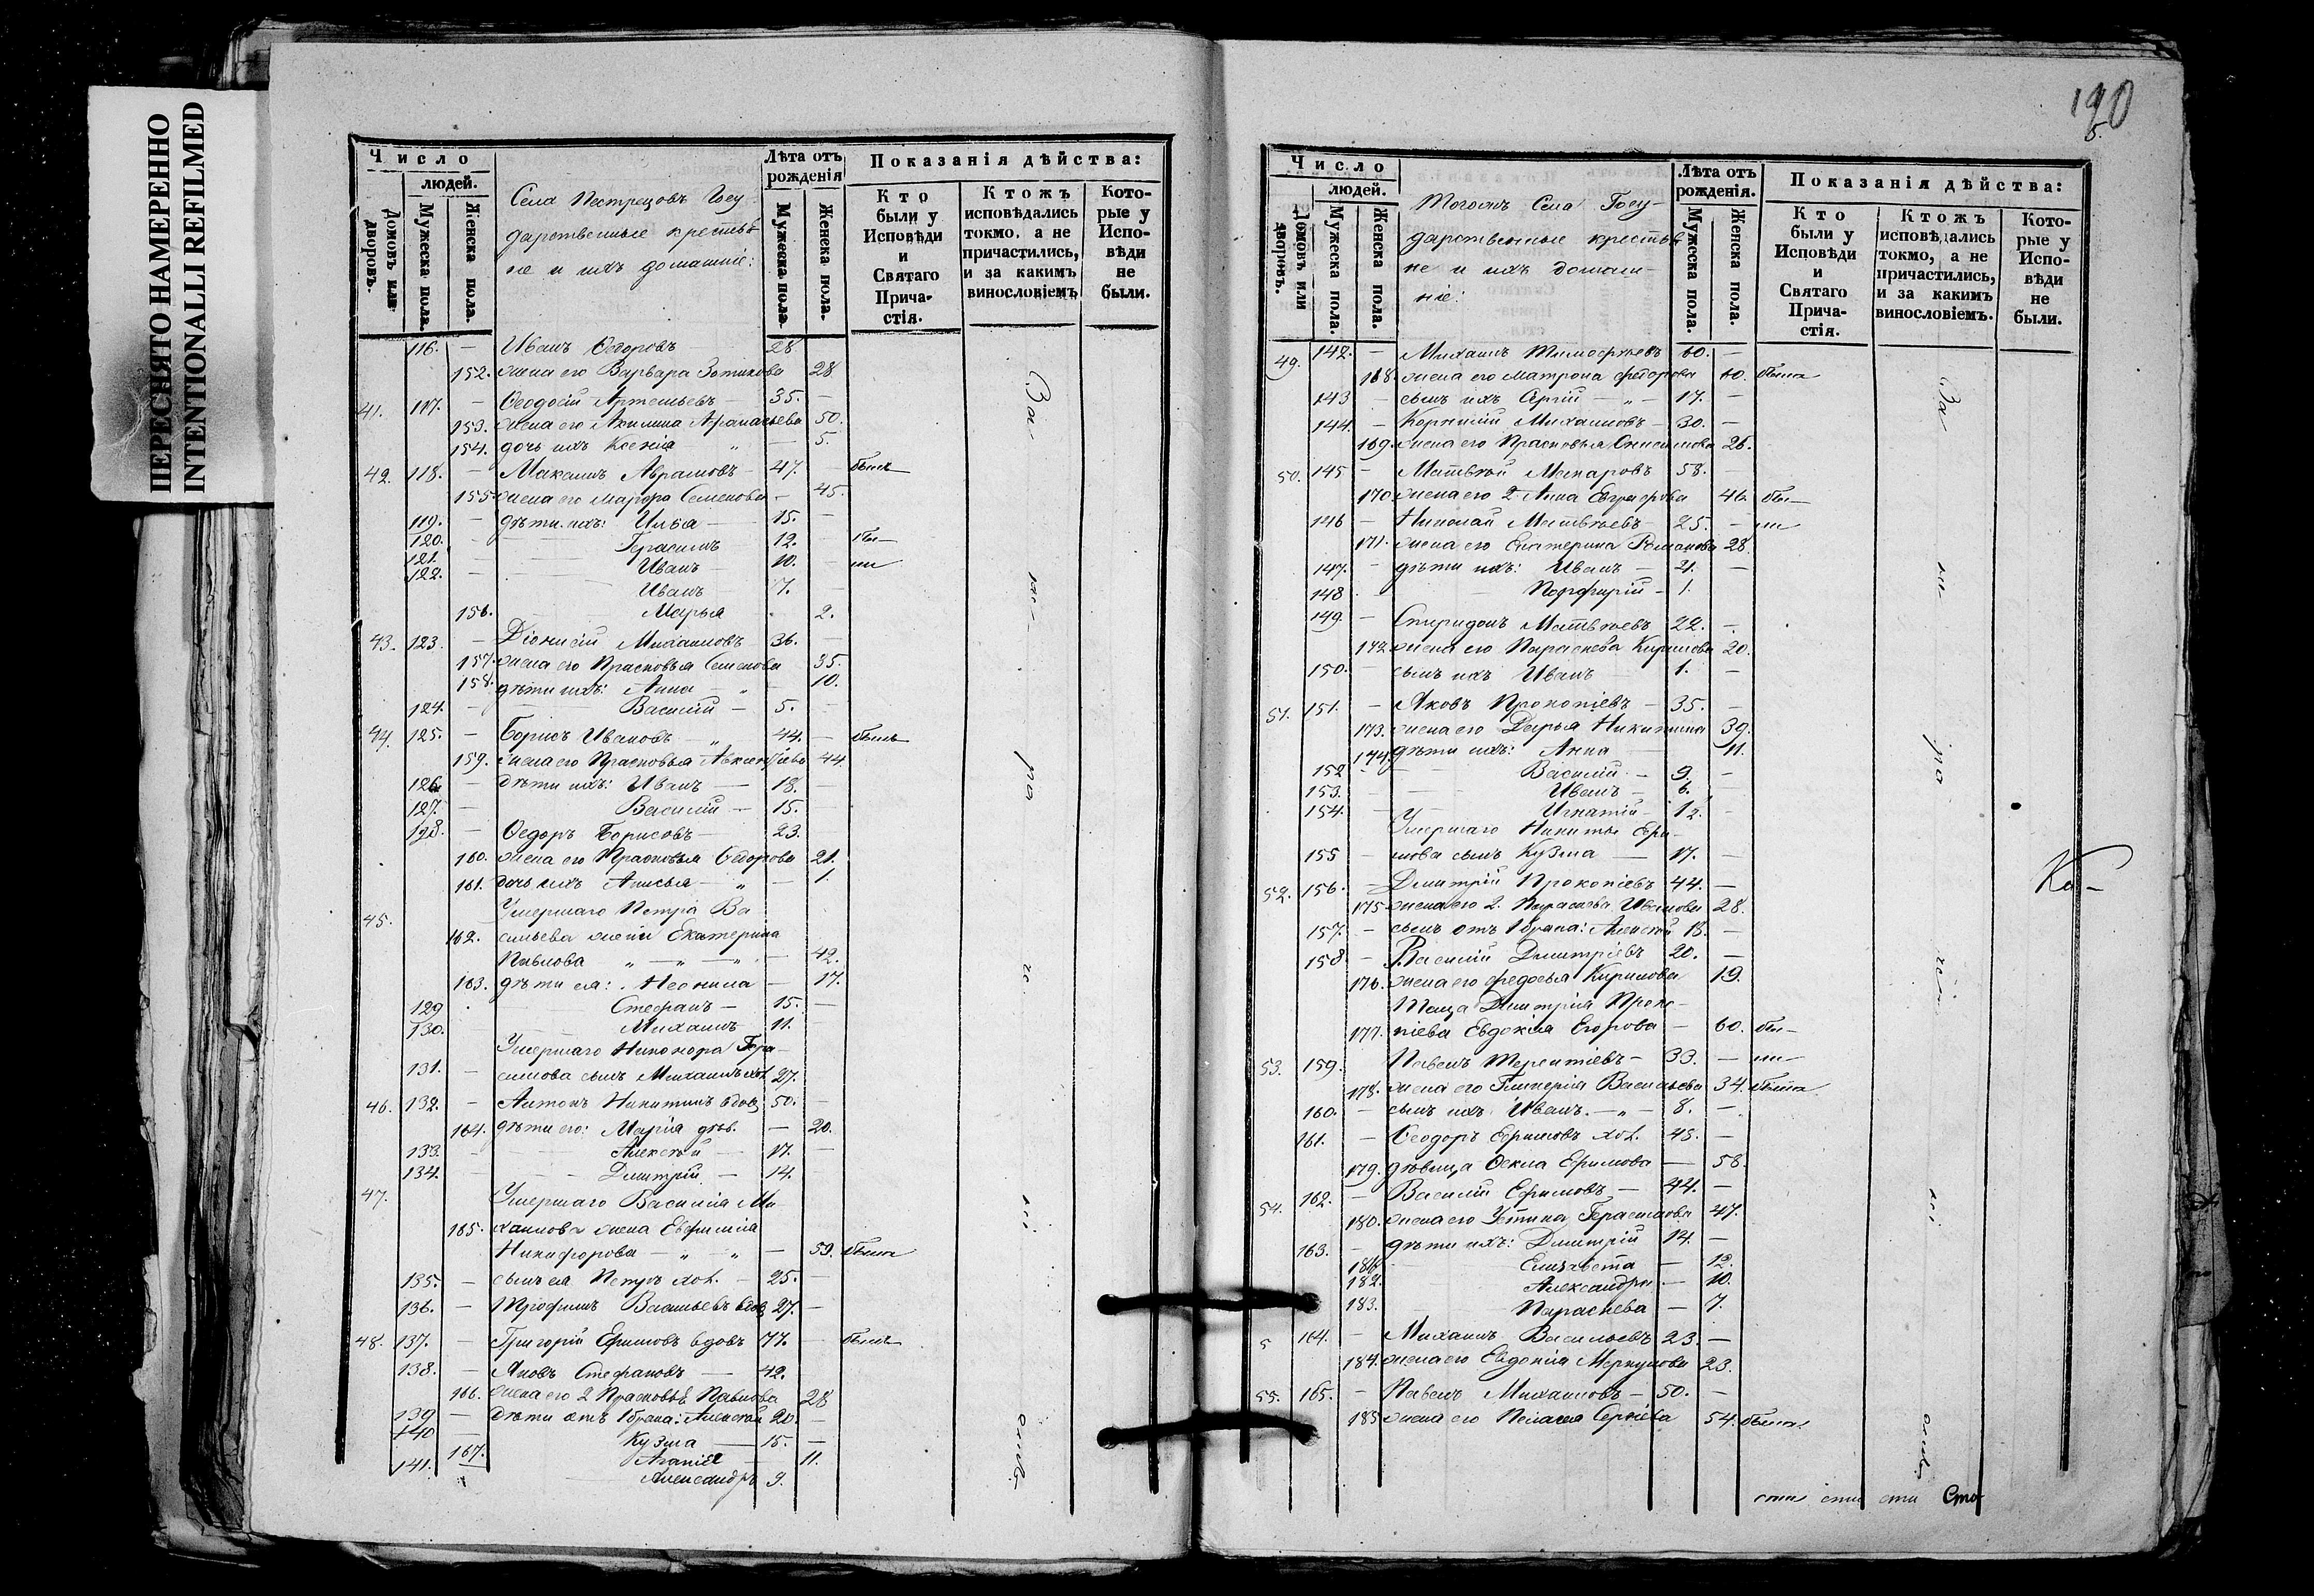 ПЕРЕСНЯТО НАМЕРЕННО
INTENTIONALLI REFILMED
Число
людей.
Домовъ или дворовъ.
Мужеска пола.
Женска пола.
Села Пестрецовъ Госу-
дарственные крестья-
не и ихъ домашніе:
Лѣта отъ рожденія
Мужеска пола.
Женска пола.
Показанія дѣйства:
Кто были у Исповѣди и Святаго Прича-стія.
Ктожъ исповѣдались токмо, а не причастились, и за какимъ винословіемъ
Кото-рые у Испо-вѣди не были.
116. — Иванъ Ѳедоровъ 28
152. жена его Варвара Зотикова 28
41. 117. — Ѳеодосій Артемьевъ — 35. —
153. жена его Акилина Афанасьева 50.
154. дочь ихъ Ксенія „ — 5.
42. 118. — Максимъ Аврамовъ — 47. — былъ
155. жена его Марфа Семенова — 45.
119. — дѣти ихъ: Илья — 15. —
120. — Герасимъ 12. — бы—
121. Иванъ 10. — ли
122. — Иванъ 7. —
156. Марья 2.
43. 123. — Діонисій Михаиловъ 36. —
157. жена его Прасковья Семенова 35.
158. дѣти ихъ: Анна — „ — 10.
124. — Василій — 5. —
44. 125. — Борисъ Ивановъ — „ 44. — былъ
159. жена его Прасковья Авксентіева 44.
126. — дѣти ихъ: Иванъ — 18. —
127. — Василій — 15. —
128. — Ѳедоръ Борисовъ — 23.
160. жена его Прасковья Ѳедорова 21.
161. дочь ихъ Анисья — „ — 1.
45. Умершаго Петра Ва
162. сильева жена Екатерина
Павлова „ — „ — „ — 42.
163. дѣти ея: Неонила — 17.
129 Стефанъ — 15. —
130. Михаилъ 11.
Умершаго Никонора Гера—
131. — симова сынъ Михаилъ хол. 27.
46. 132. — Антонъ Никитинъ вдов. 50. —
164. дѣти его: Марія дѣв. — 20.
133. — Алексѣй — 17. —
134. — Дмитрій — 14.
47. Умершаго Василія Ми
165. хаилова жена Евфимія
Никифорова — „ „ — 59. была
135. — сынъ ея Петръ хол. — 25. —
136. — Трофимъ Васильевъ вдов. 27. —
48. 137. — Григорій Ефимовъ вдовъ 77. — былъ
138. — Яковъ Стефановъ — 42.
166. жена его 2 Прасковья Павлова 28
139 — дѣти отъ 1 брака: Алексѣй 20. —
140 — Кузма — 15. —
167. Агапія — 11.
141. Александръ 9.
190
Число
людей.
Домовъ или дворовъ.
Мужеска пола.
Женска пола.
Тогожъ Села Госу-
дарственные крестья
не и ихъ домаш-
ніе:
Лѣта отъ рожденія.
Мужеска пола.
Женска пола.
Показанія дѣйства:
Кто были у Исповѣди и Святаго Прича-стія.
Ктожъ исповѣдались токмо, а не причастились, и за какимъ винословіемъ.
Кото-рые у Испо-вѣди не были.
49. 142. — Михаилъ Тимофѣевъ 60. —
168. жена его Матрона Федорова 60. была
143 — сынъ ихъ Сергій — „ — 17. —
144. — Корнилій Михаиловъ — 30. —
169. жена его Прасковья Онисимова 26.
50. 145 — Матвѣй Макаровъ 58. —
170. жена его 2 Анна Евграфова 46. бы—
146 — Николай Матвѣевъ 25. — ли
171. жена его Екатерина Романова 28.
147. — дѣти ихъ: Иванъ — 2. —
148 Порфирій — 1.
149. — Спиридонъ Матвѣевъ 22. —
172. жена его Параскева Кирилова 20.
150. — сынъ ихъ Иванъ 1. —
51. 151. — Яковъ Прокопіевъ — 35. —
173. жена его Дарья Никитина 39.
174. дѣти ихъ: Анна — 11.
152 — Василій — 9. —
153. — Иванъ — 6.
154. — Игнатій — 1/2. —
Умершаго Никиты Ефи—
155 — мова сынъ Кузма — 17. —
52. 156. — Дмитрій Прокопіевъ 44. —
175. жена его 2. Параскева Иванова 28.
157. — сынъ отъ 1 брака: Алексѣй 18. —
158 — Василій Дмитріевъ 20. —
176. жена его Федосья Кирилова 19.
Теща Дмитрія Проко-
177. піева Евдокія Егорова — 60. бы—
53. 159. Павелъ Терентіевъ — 33. — ли—
178. жена его Гликерія Васильева 34. была
160. — сынъ ихъ Иванъ. — „ — 8. —
161. — Ѳеодоръ Ефимовъ хол. 45. —
179. дѣвица Ѳекла Ефимова — 58.
54. 162. — Василій Ефимовъ — 44. —
180. жена его Устина Герасимова 47.
163. — дѣти ихъ: Дмитрій 14. —
181. Елизавета — 12.
182. Александра — 10.
183. Параскева — 7.
164. — Михаилъ Васильевъ 23. —
184. жена его Евдокія Меркулова 23.
55. 165. — Павелъ Михаиловъ — 50. —
185 жена его Пелагія Сергіева 54. была